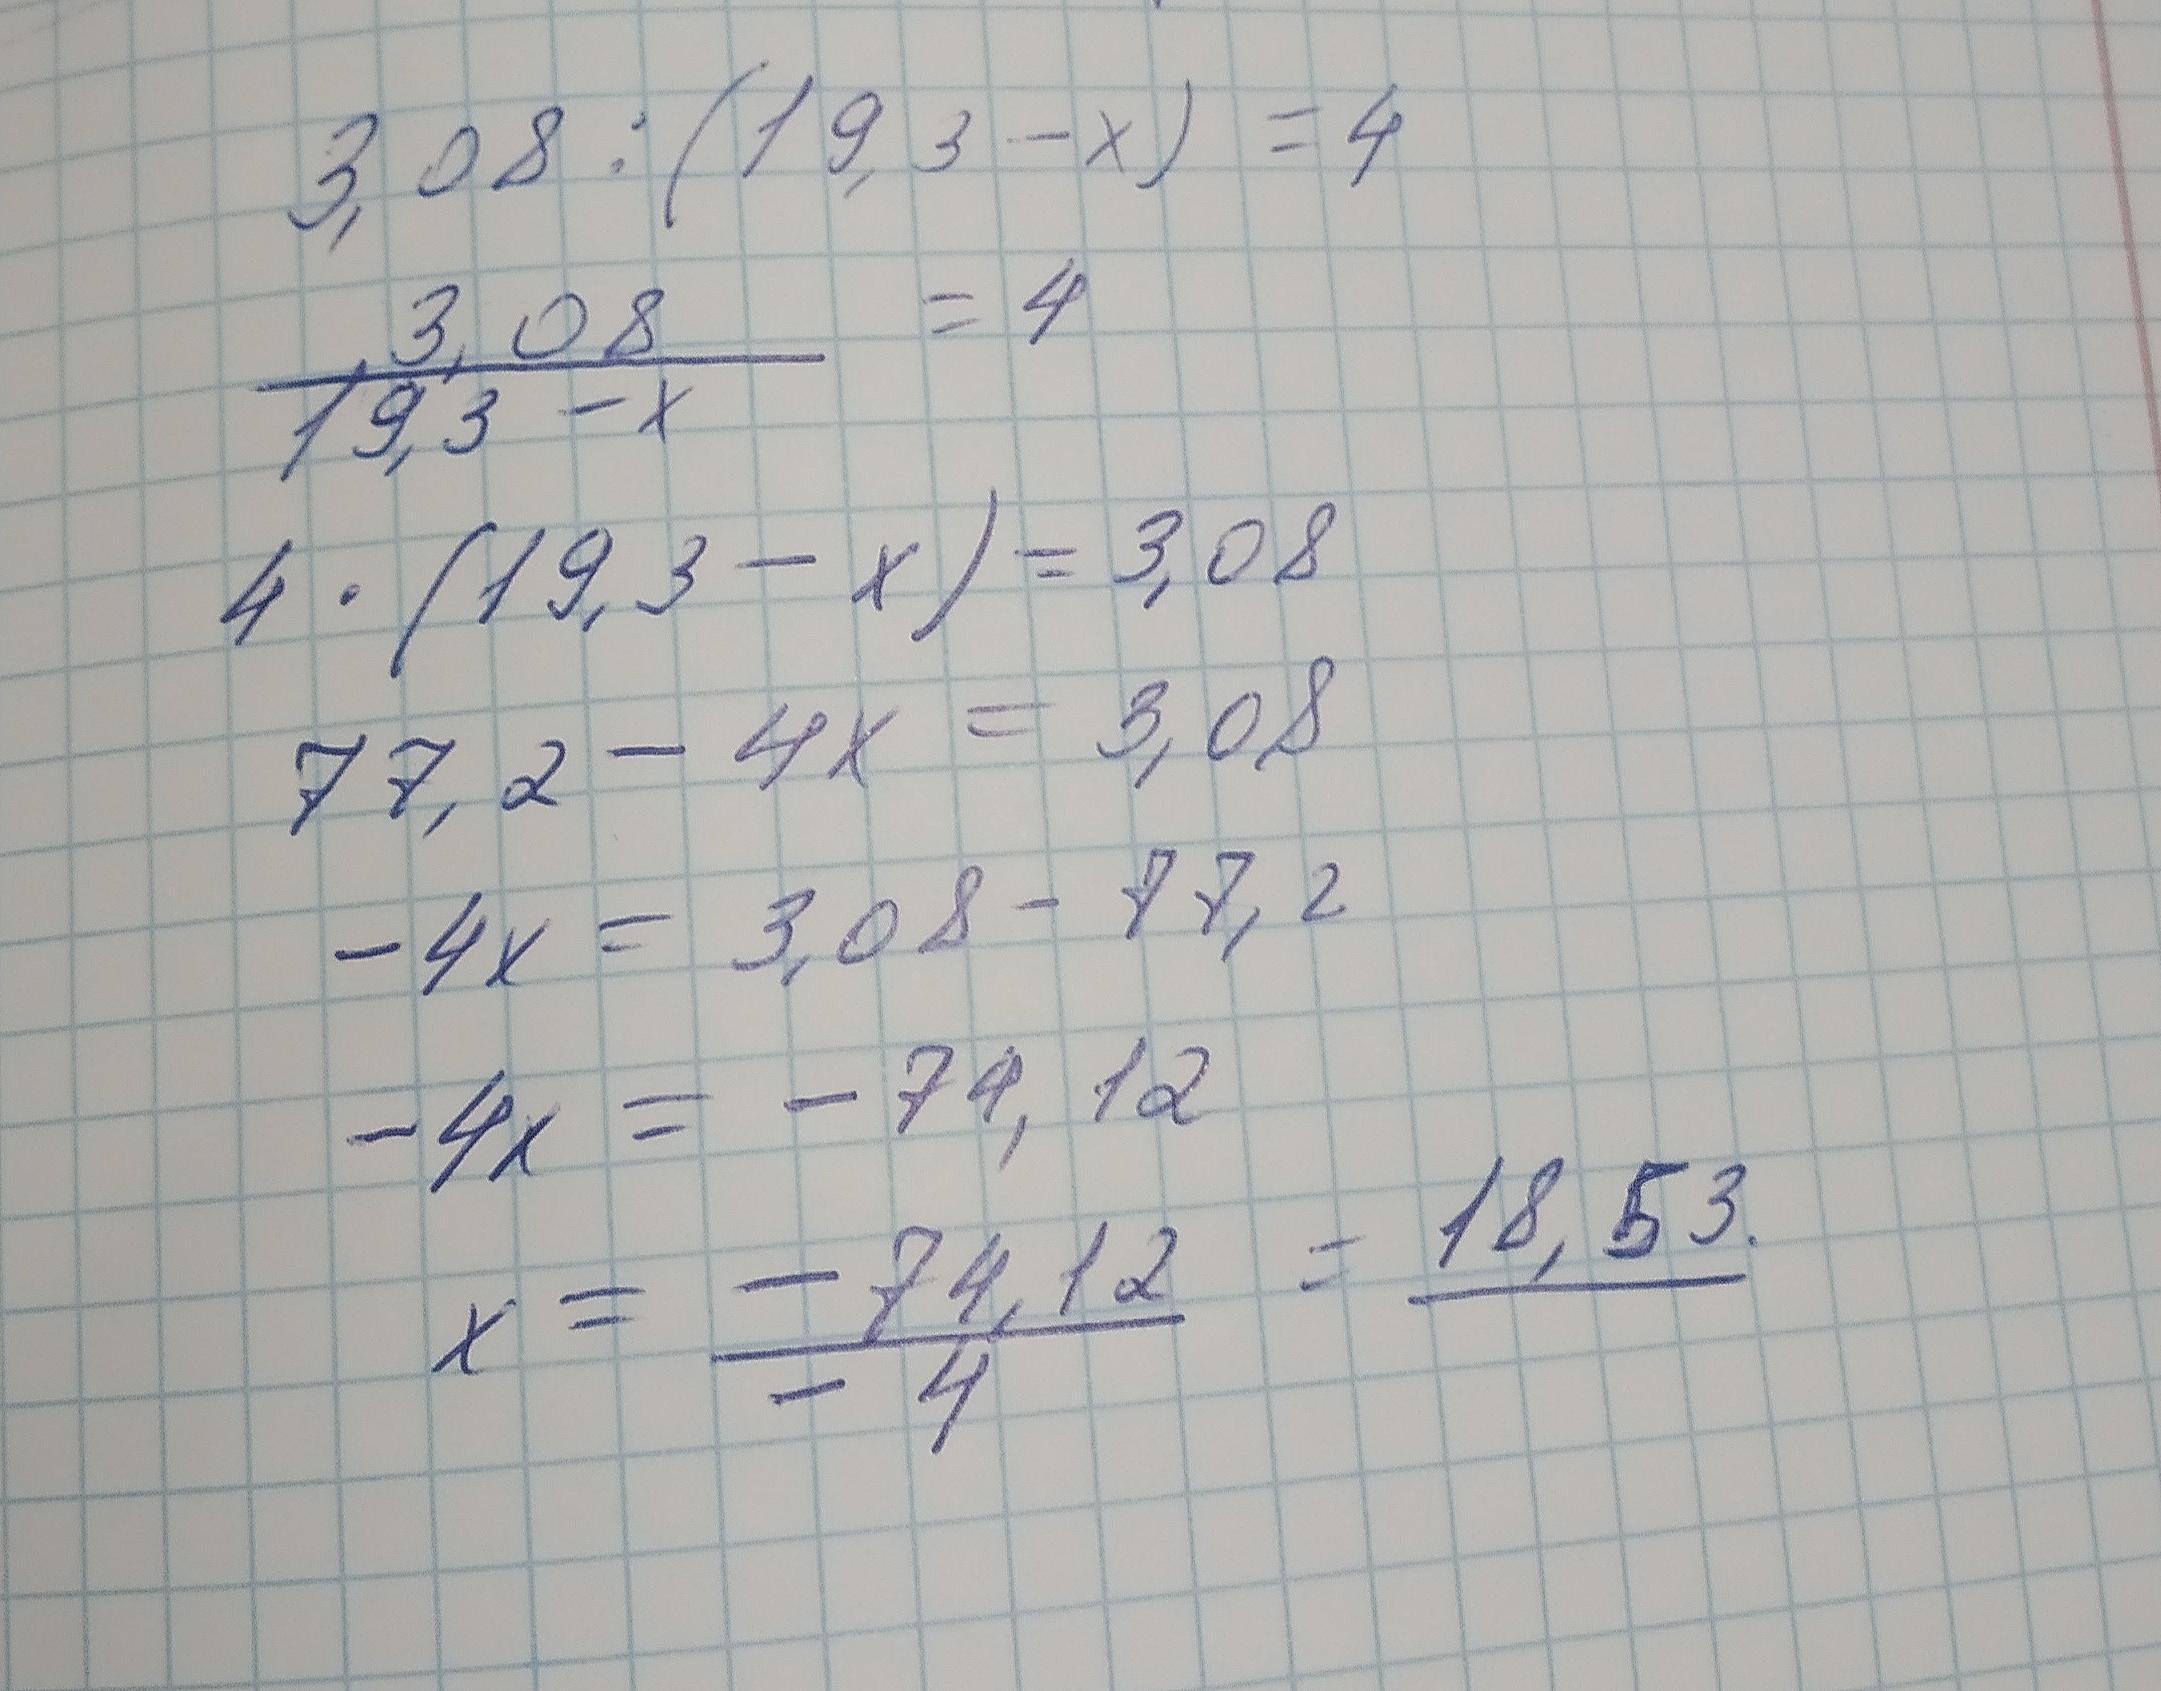 3,08 : (19,3 - x) = 4
3,08 / 19,3 - x = 4
4 · (19,3 - x) = 3,08
77,2 - 4x = 3,08
-4x = 3,08 - 77,2
-4x = -74,12
x = -74,12 / -4 = 18,53.